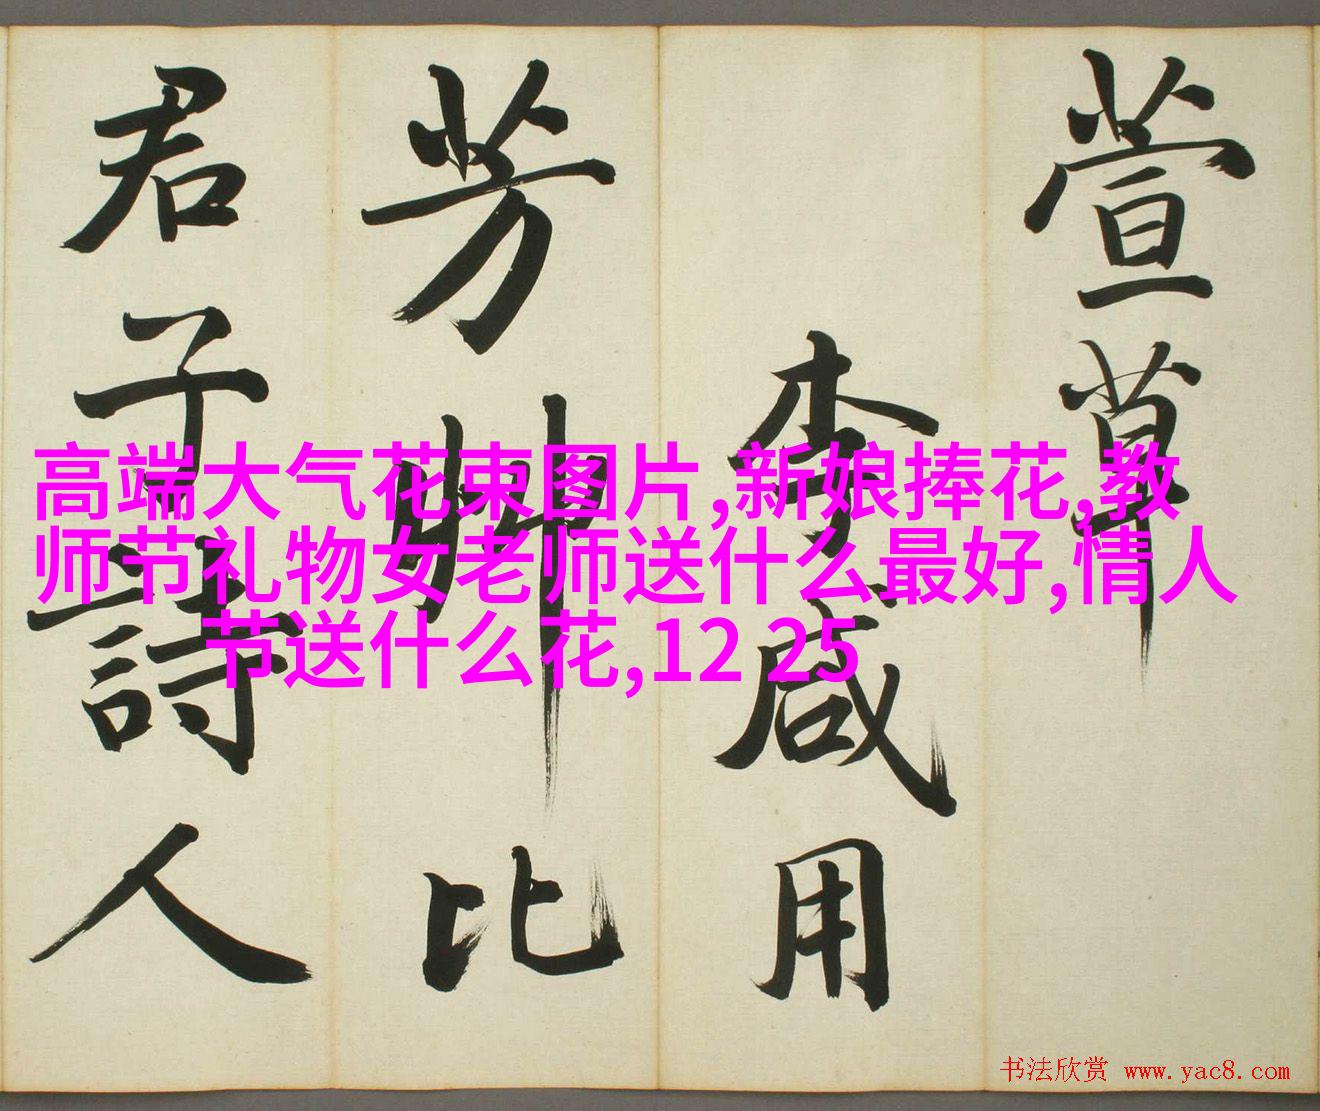 萱草
李咸用
芳艸比
君子詩人
高端大气花束图片,新娘捧花,教
师节礼物女老师送什么最好,情人
节送什么花,12 25
书法欣赏 www.yac8.com